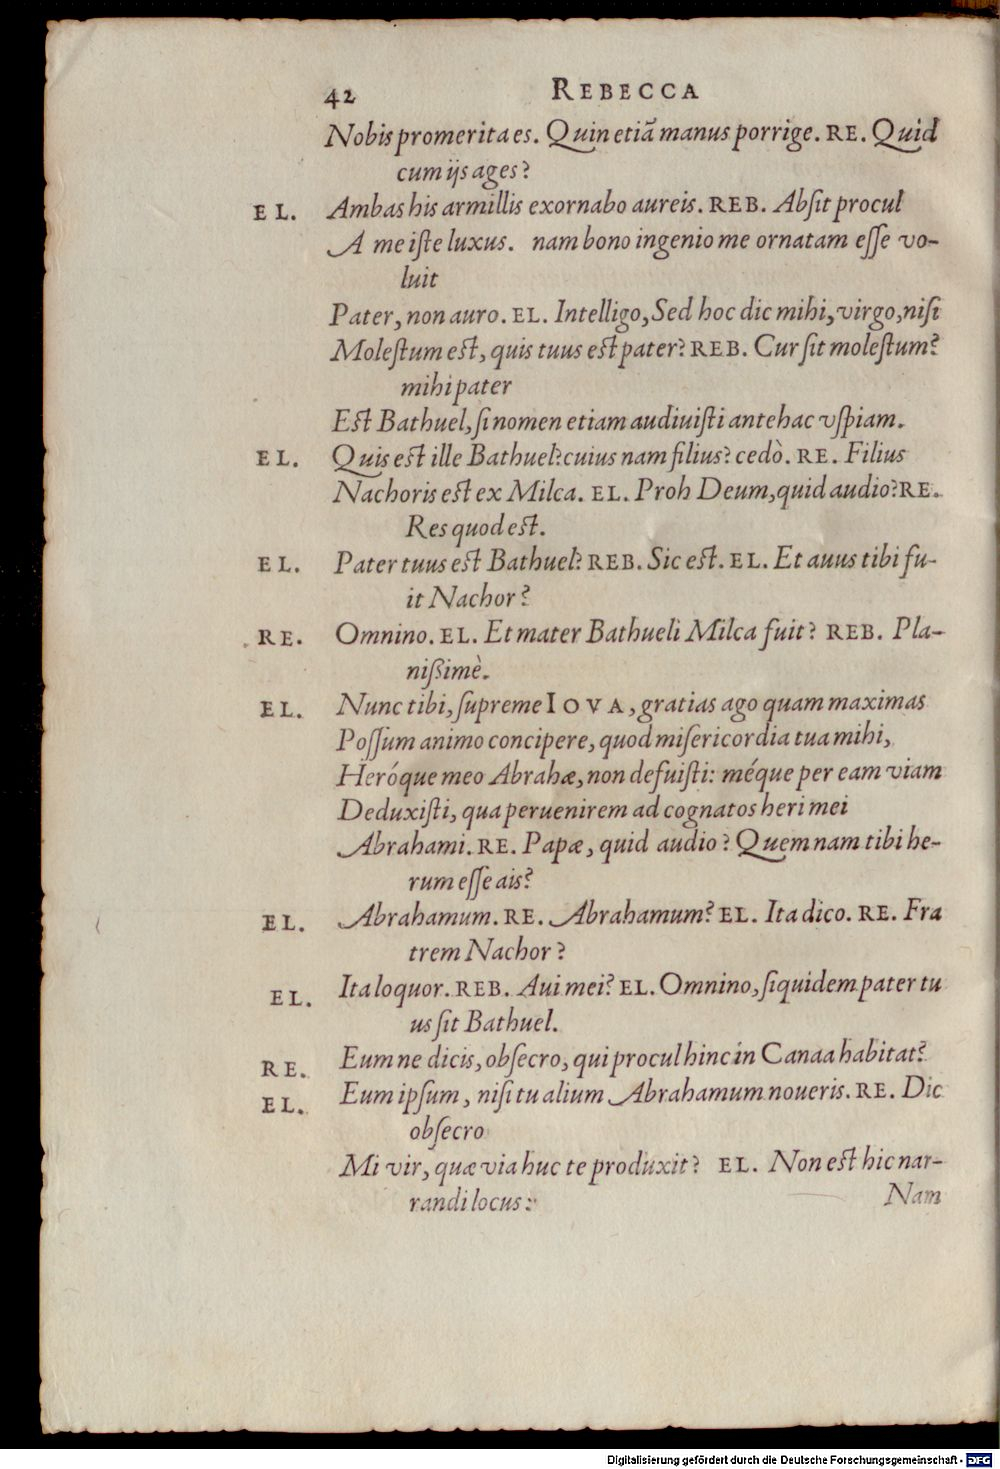 42 REBECCA
Nobis promerita es. Quin etiā manus porrige. RE. Quid
cum ijs ages?
EL. Ambas his armillis exornabo aureis. REB. Absit procul
A me iste luxus. nam bono ingenio me ornatam esse vo-
luit
Pater, non auro. EL. Intelligo, Sed hoc dic mihi, virgo, nisi
Molestum est, quis tuus est pater? REB. Cur sit molestum?
mihi pater
Est Bathuel, si nomen etiam audiuisti antehac vspiam.
EL. Quis est ille Bathuel? cuius nam filius? cedò. RE. Filius
Nachoris est ex Milca. EL. Proh Deum, quid audio? RE.
Res quod est.
EL. Pater tuus est Bathuel? REB. Sic est. EL. Et auus tibi fu-
it Nachor?
RE. Omnino. EL. Et mater Bathueli Milca fuit? REB. Pla-
nißimè.
EL. Nunc tibi, supreme IOVA, gratias ago quam maximas
Possum animo concipere, quod misericordia tua mihi,
Heróque meo Abrahæ, non defuisti: méque per eam viam
Deduxisti, qua peruenirem ad cognatos heri mei
Abrahami. RE. Papæ, quid audio? Quem nam tibi he-
rum esse ais?
EL. Abrahamum. RE. Abrahamum? EL. Ita dico. RE. Fra
trem Nachor?
EL. Ita loquor. REB. Aui mei? EL. Omnino, siquidem pater tu
us sit Bathuel.
RE. Eum ne dicis, obsecro, qui procul hinc in Canaa habitat?
EL. Eum ipsum, nisi tu alium Abrahamum noueris. RE. Dic
obsecro
Mi vir, quæ via huc te produxit? EL. Non est hic nar-
randi locus:
Nam
Digitalisierung gefördert durch die Deutsche Forschungsgemeinschaft - DFG